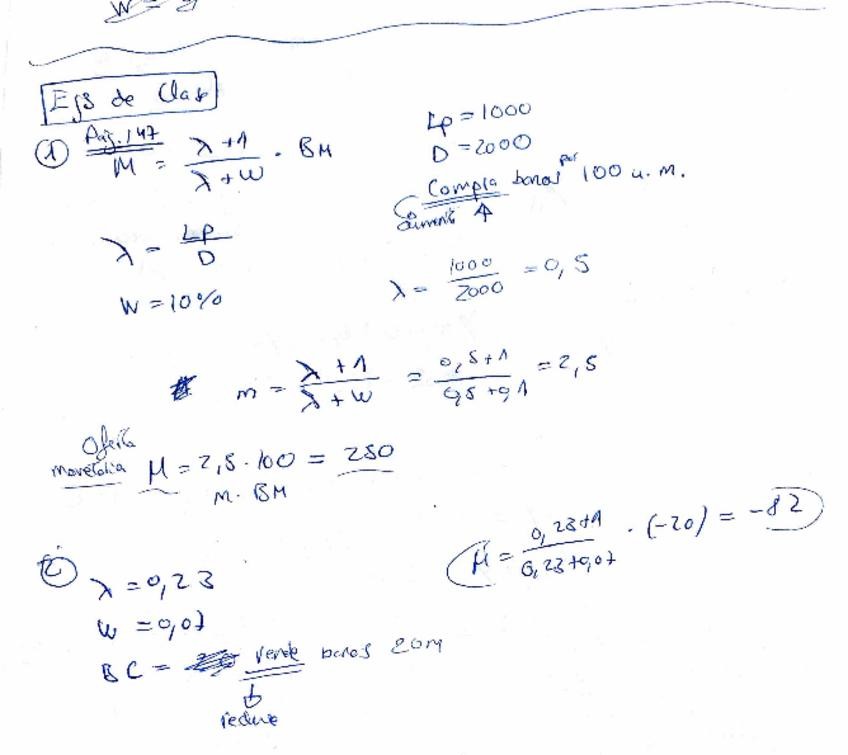 W =
Ejs de Clase
① Pág. 147
M = λ+1 / λ+W · BM
Lp = 1000
D = 2000
Compra bonos por 100 u.m.
aumenta ↑
λ = Lp / D
W = 10%
λ = 1000 / 2000 = 0,5
m = λ+1 / λ+W = 0,5+1 / 0,5+0,1 = 2,5
Oferta
monetaria M = 2,5 · 100 = 250
m · BM
②
λ = 0,23
W = 0,07
BC = vende bonos 20m
reduce
M = 0,23+1 / 0,23+0,07 · (-20) = -82